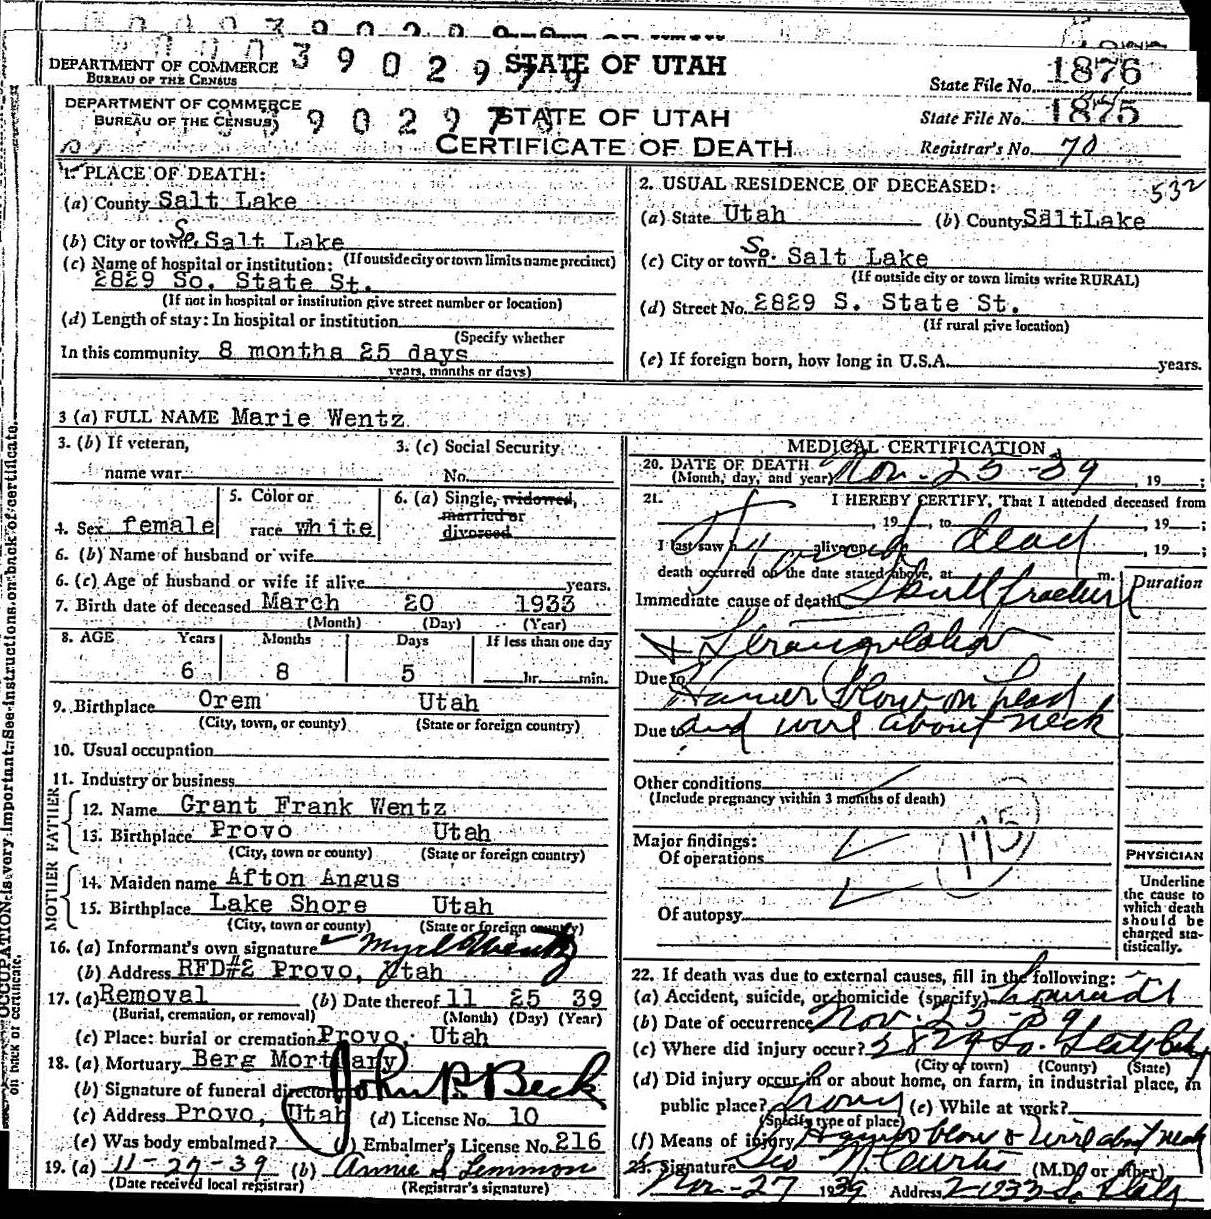 DEPARTMENT OF COMMERCE
BUREAU OF THE CENSUS
390297
STATE OF UTAH
State File No. 1876
DEPARTMENT OF COMMERCE
BUREAU OF THE CENSUS
390297
STATE OF UTAH
State File No. 1875
CERTIFICATE OF DEATH
Registrar's No. 70
532
1. PLACE OF DEATH:
(a) County Salt Lake
(b) City or town So. Salt Lake
(If outside city or town limits name precinct)
(c) Name of hospital or institution:
2829 So. State St.
(If not in hospital or institution give street number or location)
(d) Length of stay: In hospital or institution
(Specify whether
In this community 8 months 25 days
years, months or days)
2. USUAL RESIDENCE OF DECEASED:
(a) State Utah (b) County SaltLake
(c) City or town So. Salt Lake
(If outside city or town limits write RURAL)
(d) Street No. 2829 S. State St.
(If rural give location)
(e) If foreign born, how long in U.S.A. years.
3 (a) FULL NAME Marie Wentz
3. (b) If veteran,
name war
3. (c) Social Security
No.
4. Sex female
5. Color or
race white
6. (a) Single, widowed,
married or
divorced
6. (b) Name of husband or wife
6. (c) Age of husband or wife if alive years.
7. Birth date of deceased March 20 1933
(Month) (Day) (Year)
8. AGE Years Months Days If less than one day
6 8 5 hr. min.
9. Birthplace Orem Utah
(City, town, or county) (State or foreign country)
10. Usual occupation
11. Industry or business
FATHER
12. Name Grant Frank Wentz
13. Birthplace Provo Utah
(City, town or county) (State or foreign country)
MOTHER
14. Maiden name Afton Angus
15. Birthplace Lake Shore Utah
(City, town or county) (State or foreign country)
16. (a) Informant's own signature Wentz
(b) Address RFD#2 Provo, Utah
17. (a) Removal (b) Date thereof 11 25 39
(Burial, cremation, or removal) (Month) (Day) (Year)
(c) Place: burial or cremation Provo, Utah
18. (a) Mortuary Berg Mortuary
(b) Signature of funeral director John R Beck
(c) Address Provo, Utah (d) License No. 10
(e) Was body embalmed? (f) Embalmer's License No. 216
19. (a) 11-27-39 (b) Annie S Lemmon
(Date received local registrar) (Registrar's signature)
MEDICAL CERTIFICATION
20. DATE OF DEATH
(Month, day, and year) Nov. 25-39, 19 ;
21. I HEREBY CERTIFY, That I attended deceased from
, 19 , to , 19 ;
I last saw h alive on , 19 ;
Found dead
death occurred on the date stated above, at m.
Duration
Immediate cause of death Skull fracture
+ Strangulation
Due to Hamer blow on head
Due to and wire about neck
Other conditions
(Include pregnancy within 3 months of death)
Major findings:
Of operations
175
Of autopsy
PHYSICIAN
Underline
the cause to
which death
should be
charged sta-
tistically.
22. If death was due to external causes, fill in the following:
(a) Accident, suicide, or homicide (specify)
(b) Date of occurrence Nov. 25-39
(c) Where did injury occur? 2829 So. State
(City or town) (County) (State)
(d) Did injury occur in or about home, on farm, in industrial place, in
public place? home (e) While at work?
(Specify type of place)
(f) Means of injury blow & wire about neck
23. Signature Geo N. Curtis (M.D. or other)
Nov-27 1939 Address 2033 So State
OCCUPATION is very important. See instructions on back of certificate.
on back of certificate.